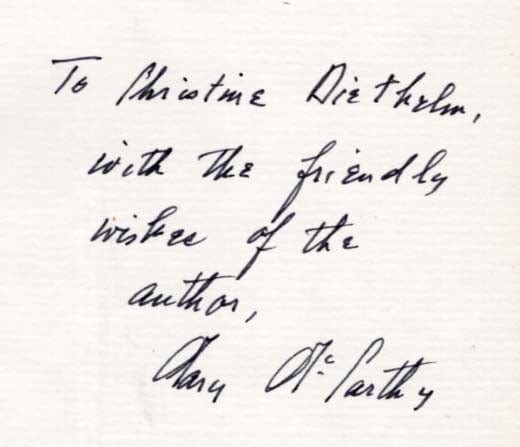 To Christine Diethelm,
with the friendly
wishes of the
author,
Mary McCarthy